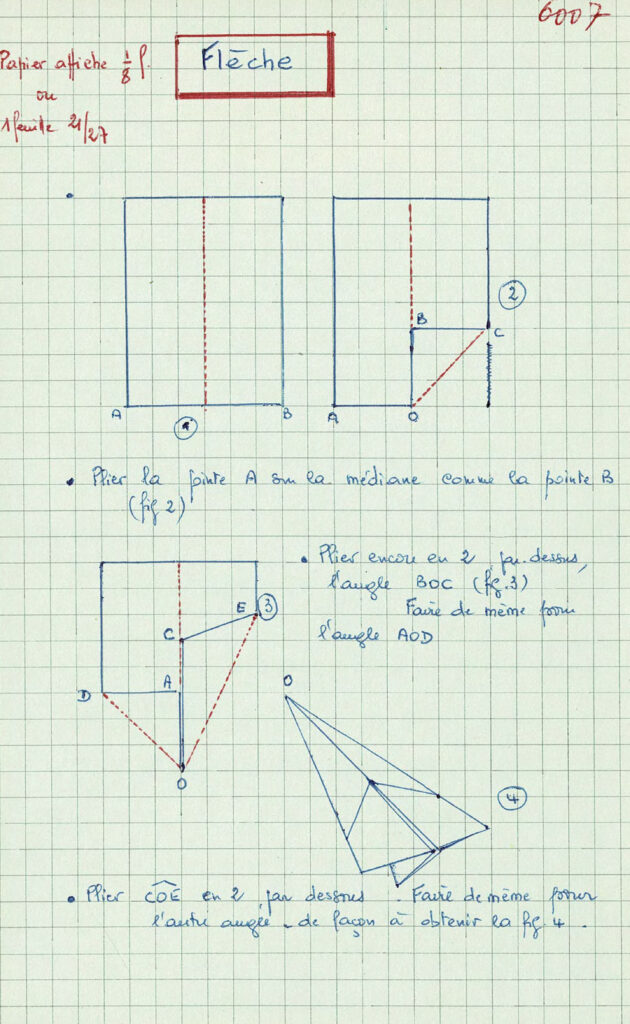 6007
Papier affiche 1/8 f.
Flèche
ou
1 feuille 21/27
A
B
1
B
C
2
A
O
• Plier la pointe A sur la médiane comme la pointe B
(fig 2)
• Plier encore en 2 par dessus,
l'angle BOC (fig. 3)
Faire de même pour
l'angle AOD
E
3
C
A
D
O
O
4
• Plier COE en 2 par dessous. Faire de même pour
l'autre angle - de façon à obtenir la fig 4.